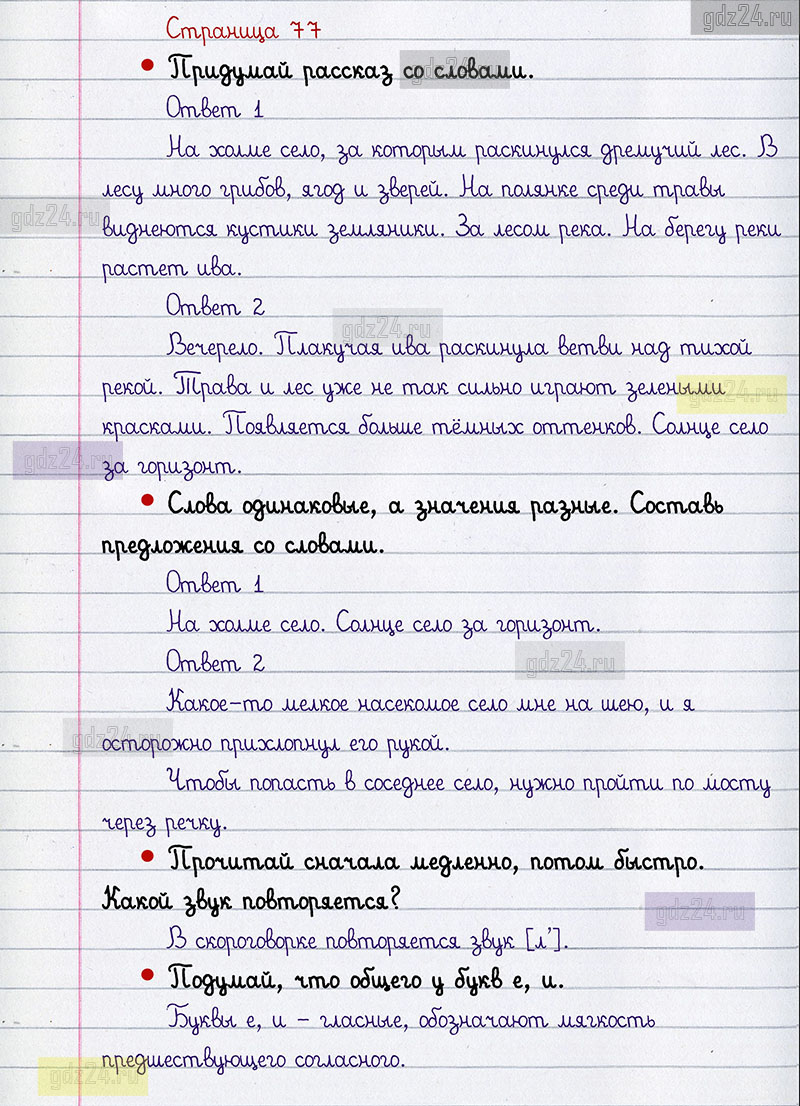 gdz24.ru
Страница 77
• Придумай рассказ со словами.
gdz24.ru
Ответ 1
На холме село, за которым раскинулся дремучий лес. В
лесу много грибов, ягод и зверей. На полянке среди травы
gdz24.ru
виднеются кустики земляники. За лесом река. На берегу реки
растет ива.
Ответ 2
gdz24.ru
Вечерело. Плакучая ива раскинула ветви над тихой
рекой. Трава и лес уже не так сильно играют зелеными
gdz24.ru
красками. Появляется больше тёмных оттенков. Солнце село
gdz24.ru
за горизонт.
• Слова одинаковые, а значения разные. Составь
предложения со словами.
Ответ 1
На холме село. Солнце село за горизонт.
Ответ 2
gdz24.ru
Какое-то мелкое насекомое село мне на шею, и я
gdz24.ru
осторожно прихлопнул его рукой.
Чтобы попасть в соседнее село, нужно пройти по мосту
через речку.
• Прочитай сначала медленно, потом быстро.
Какой звук повторяется?
gdz24.ru
В скороговорке повторяется звук [л’].
• Подумай, что общего у букв е, и.
Буквы е, и – гласные, обозначают мягкость
предшествующего согласного.
gdz24.ru